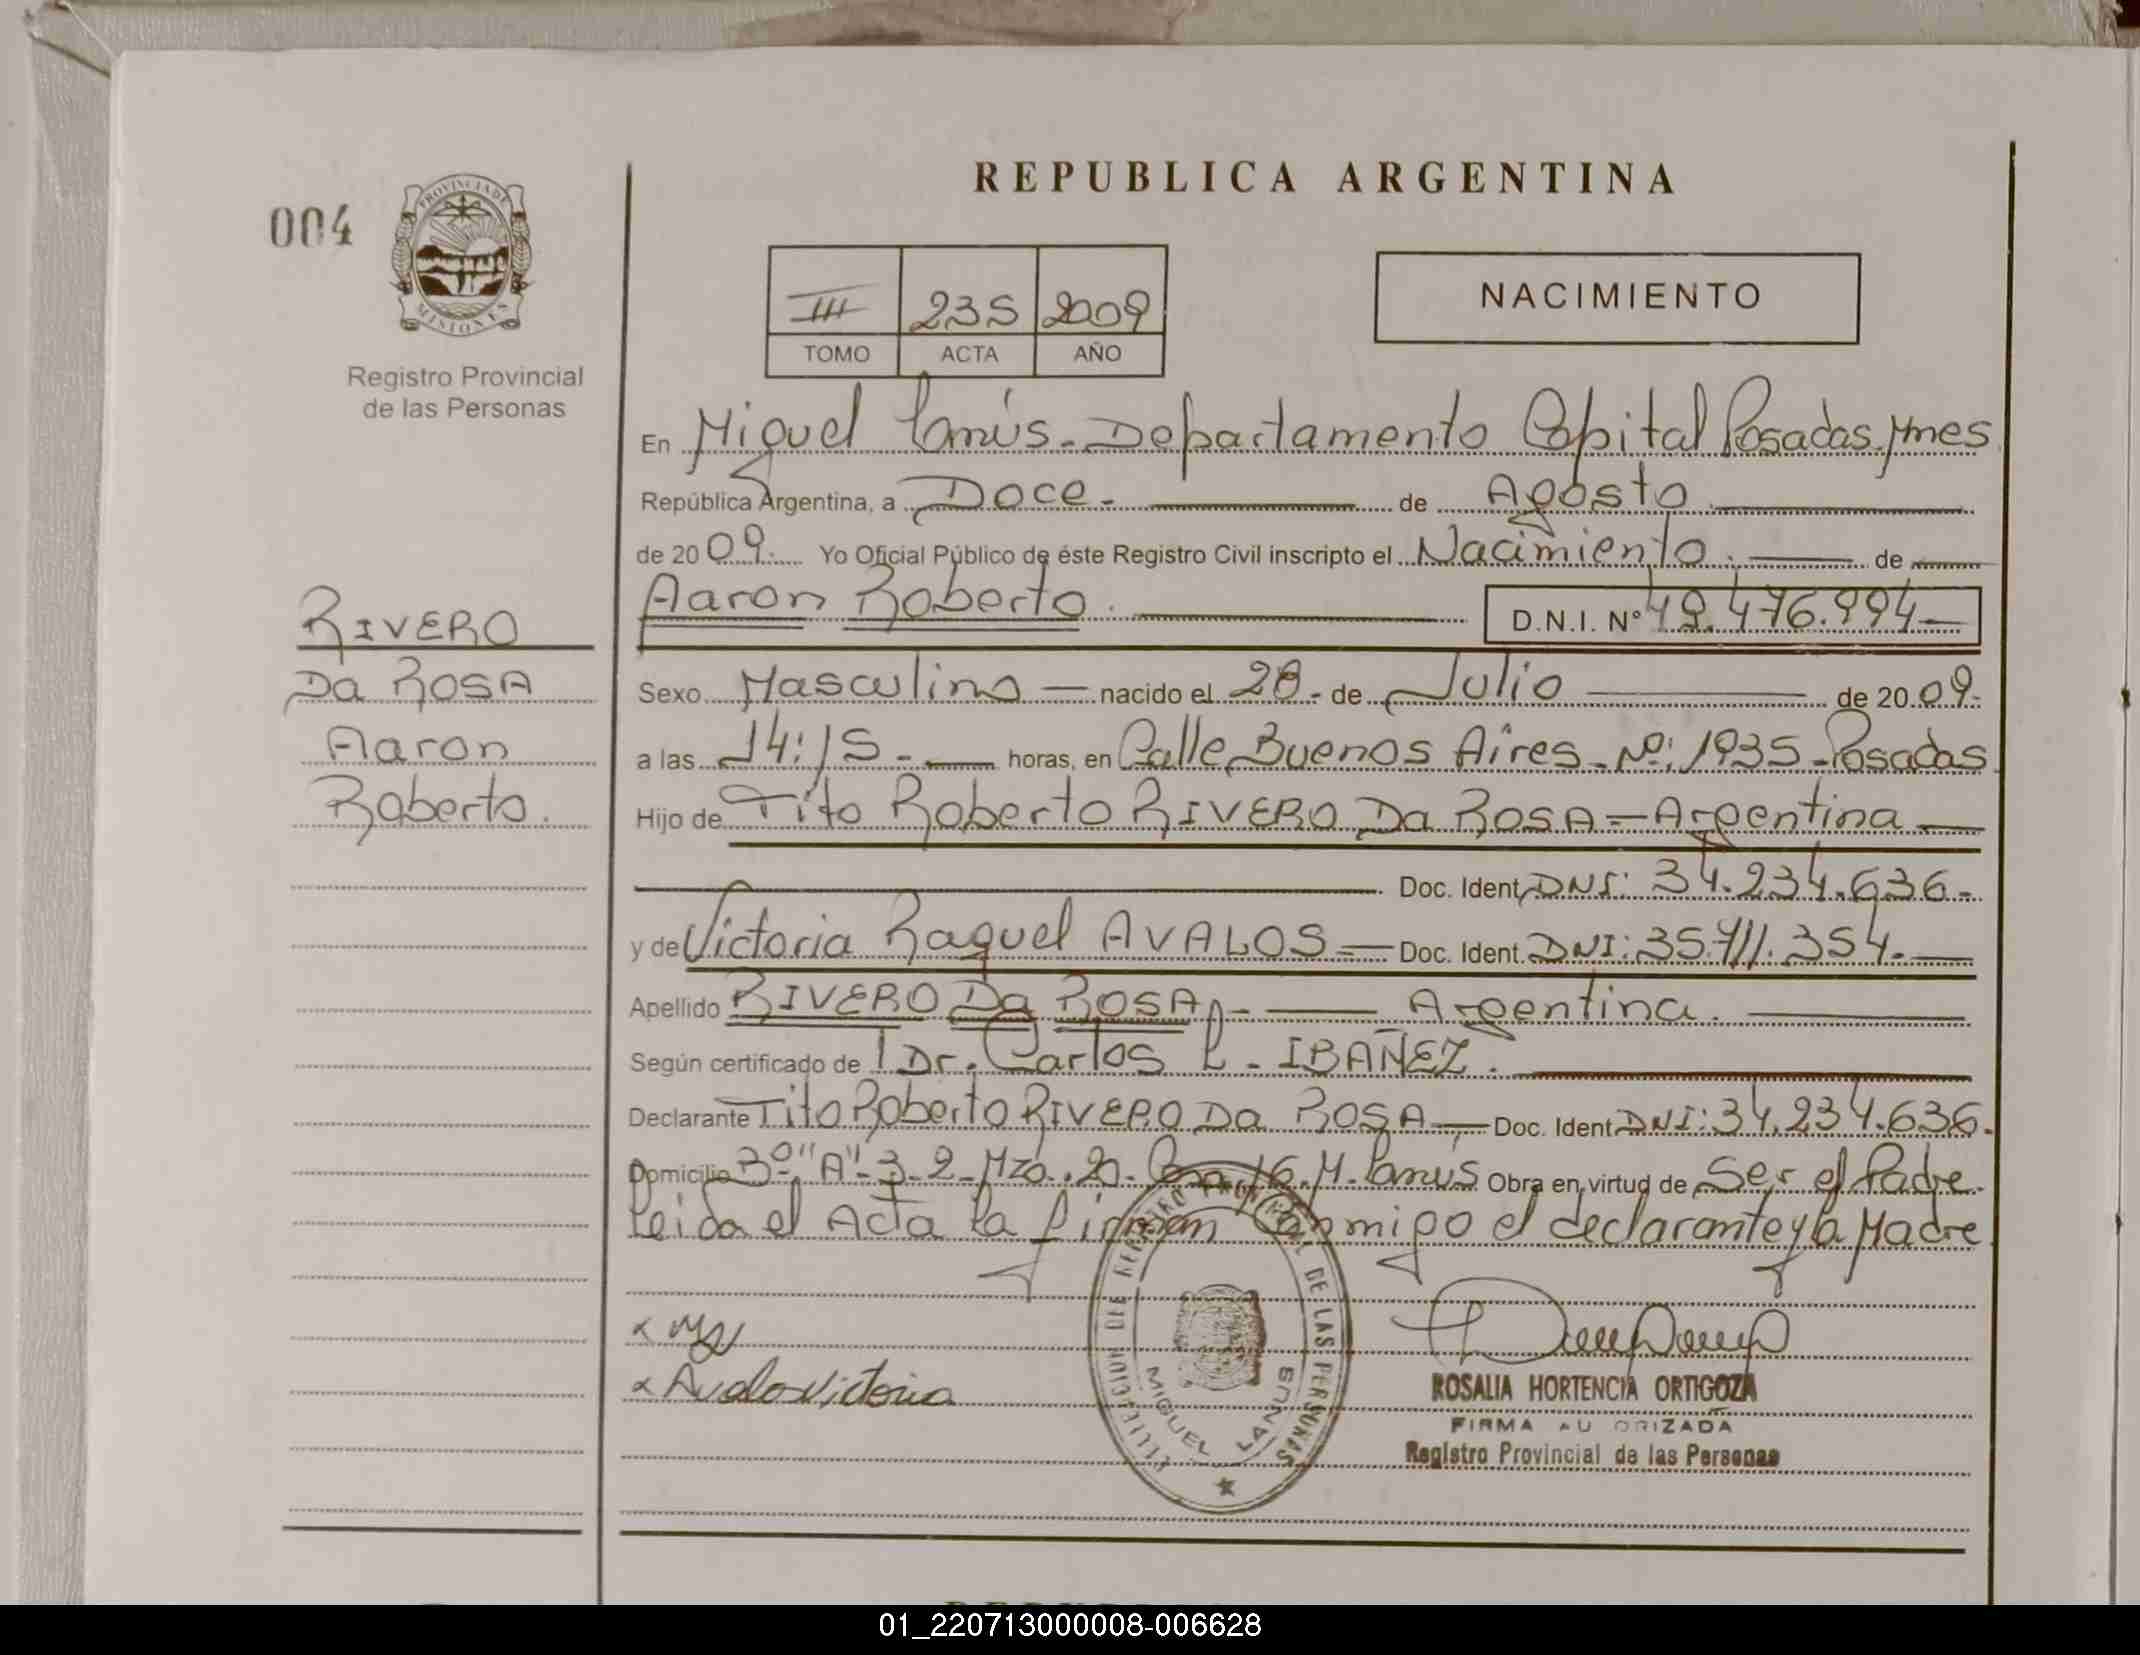 REPUBLICA ARGENTINA
004
PROVINCIA DE
MISIONES
Registro Provincial
de las Personas
III 235 2009
TOMO ACTA AÑO
NACIMIENTO
En Miguel Lanús - Departamento Capital Posadas Mnes
República Argentina, a Doce.- de Agosto
de 2009. Yo Oficial Público de éste Registro Civil inscripto el Nacimiento. de
Aaron Roberto. D.N.I. Nº
RIVERO
Da ROSA
Aaron
Roberto.
Sexo Masculino — nacido el 28 - de Julio de 2009.
a las 14:15.- horas, en Calle Buenos Aires - Nº: 1935 - Posadas
Hijo de Tito Roberto RIVERO Da ROSA — Argentina —
Doc. Ident. DNI: 34.234.636.-
y de Victoria Raquel AVALOS — Doc. Ident. DNI: 35.711.354.-
Apellido RIVERO Da ROSA - — Argentina.
Según certificado de Dr. Carlos L. IBAÑEZ.
Declarante Tito Roberto RIVERO Da ROSA — Doc. Ident DNI: 34.234.636.
Domicilio 3º "A" - 3 - 2 - Mza. 16. M. Lanús Obra en virtud de Ser el Padre.
Leida el Acta la firman Conmigo el declarante y la Madre
x
x Avalos Victoria
OFICIAL DE REGISTRO PROVINCIAL DE LAS PERSONAS
MIGUEL LANUS
ROSALIA HORTENCIA ORTIGOZA
FIRMA AU ORIZADA
Registro Provincial de las Personas
01_220713000008-006628